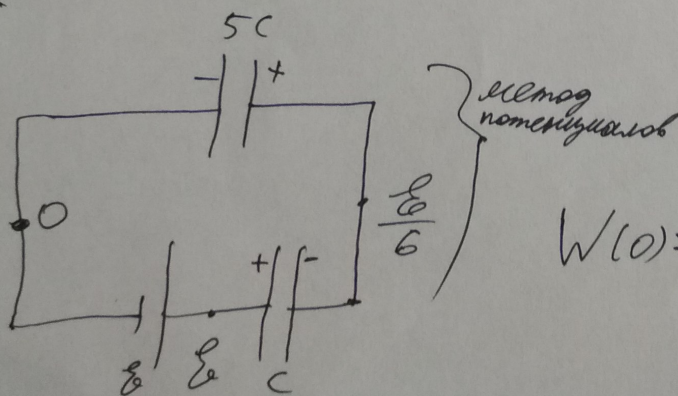 5C
- +
метод
потенциалов
0
ℰ/6
W(0)=
+ -
ℰ ℰ C